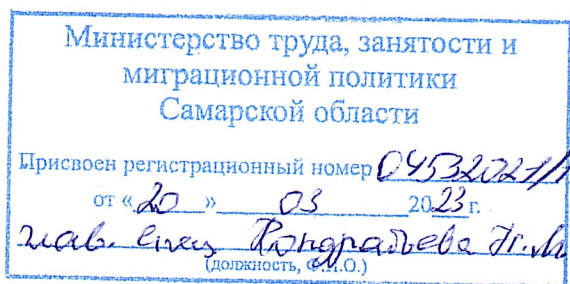 Министерство труда, занятости и
миграционной политики
Самарской области
Присвоен регистрационный номер 04532021/
от « 20 » 03 2023 г.
глав. спец Кондратьева
(должность, Ф.И.О.)